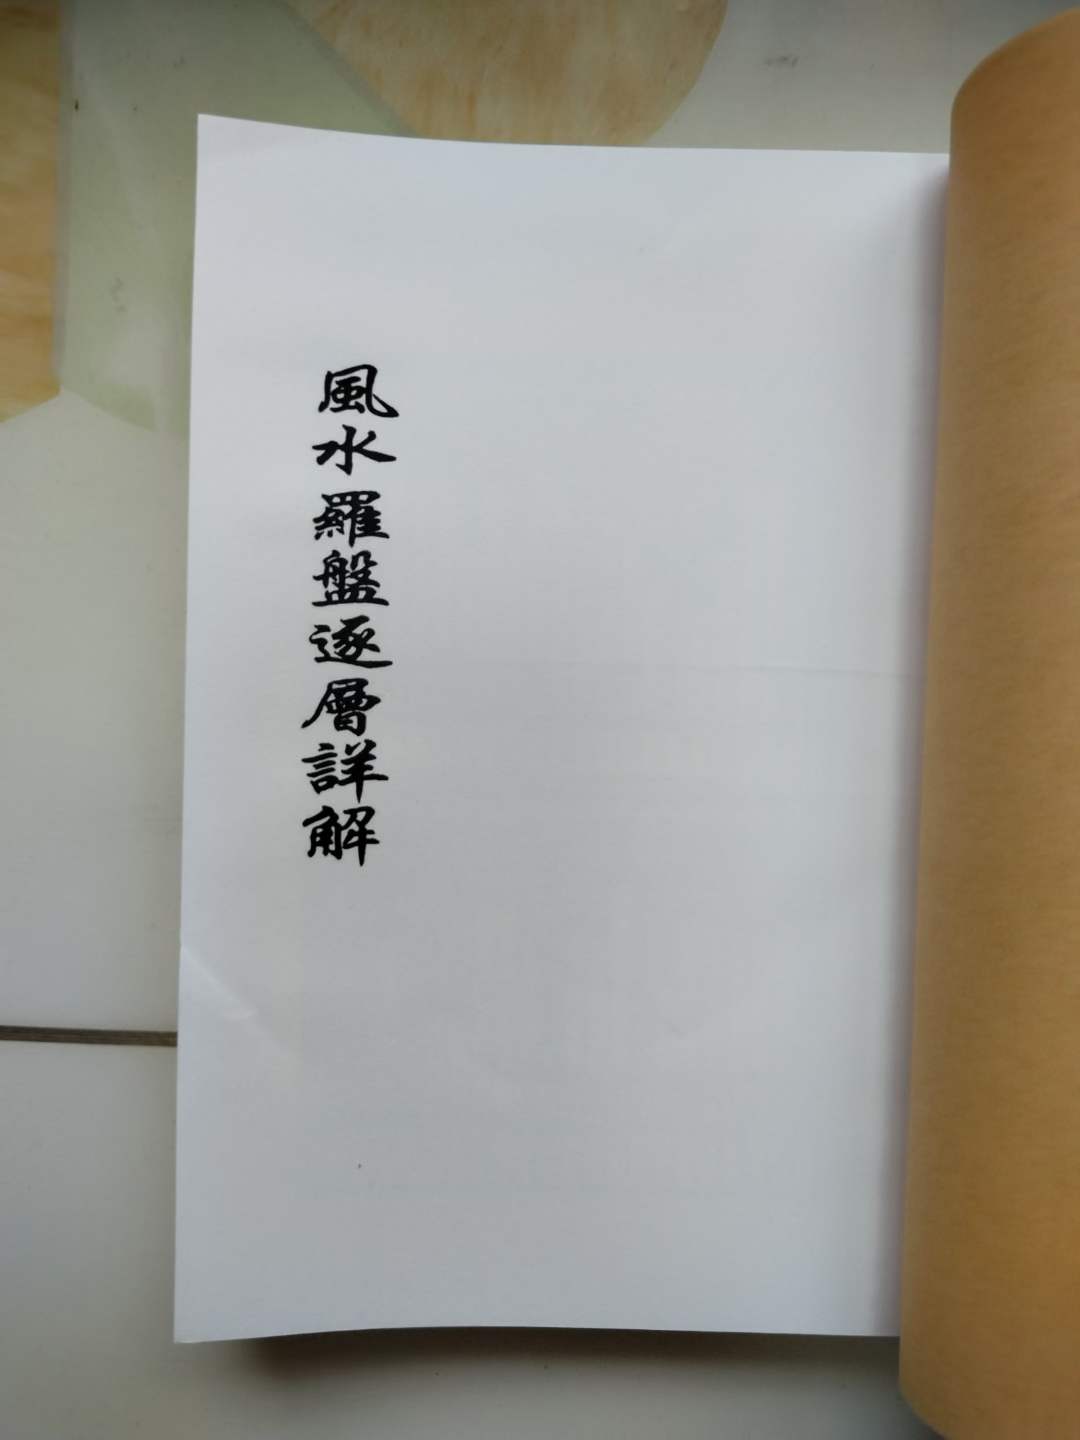 風水羅盤逐層詳解